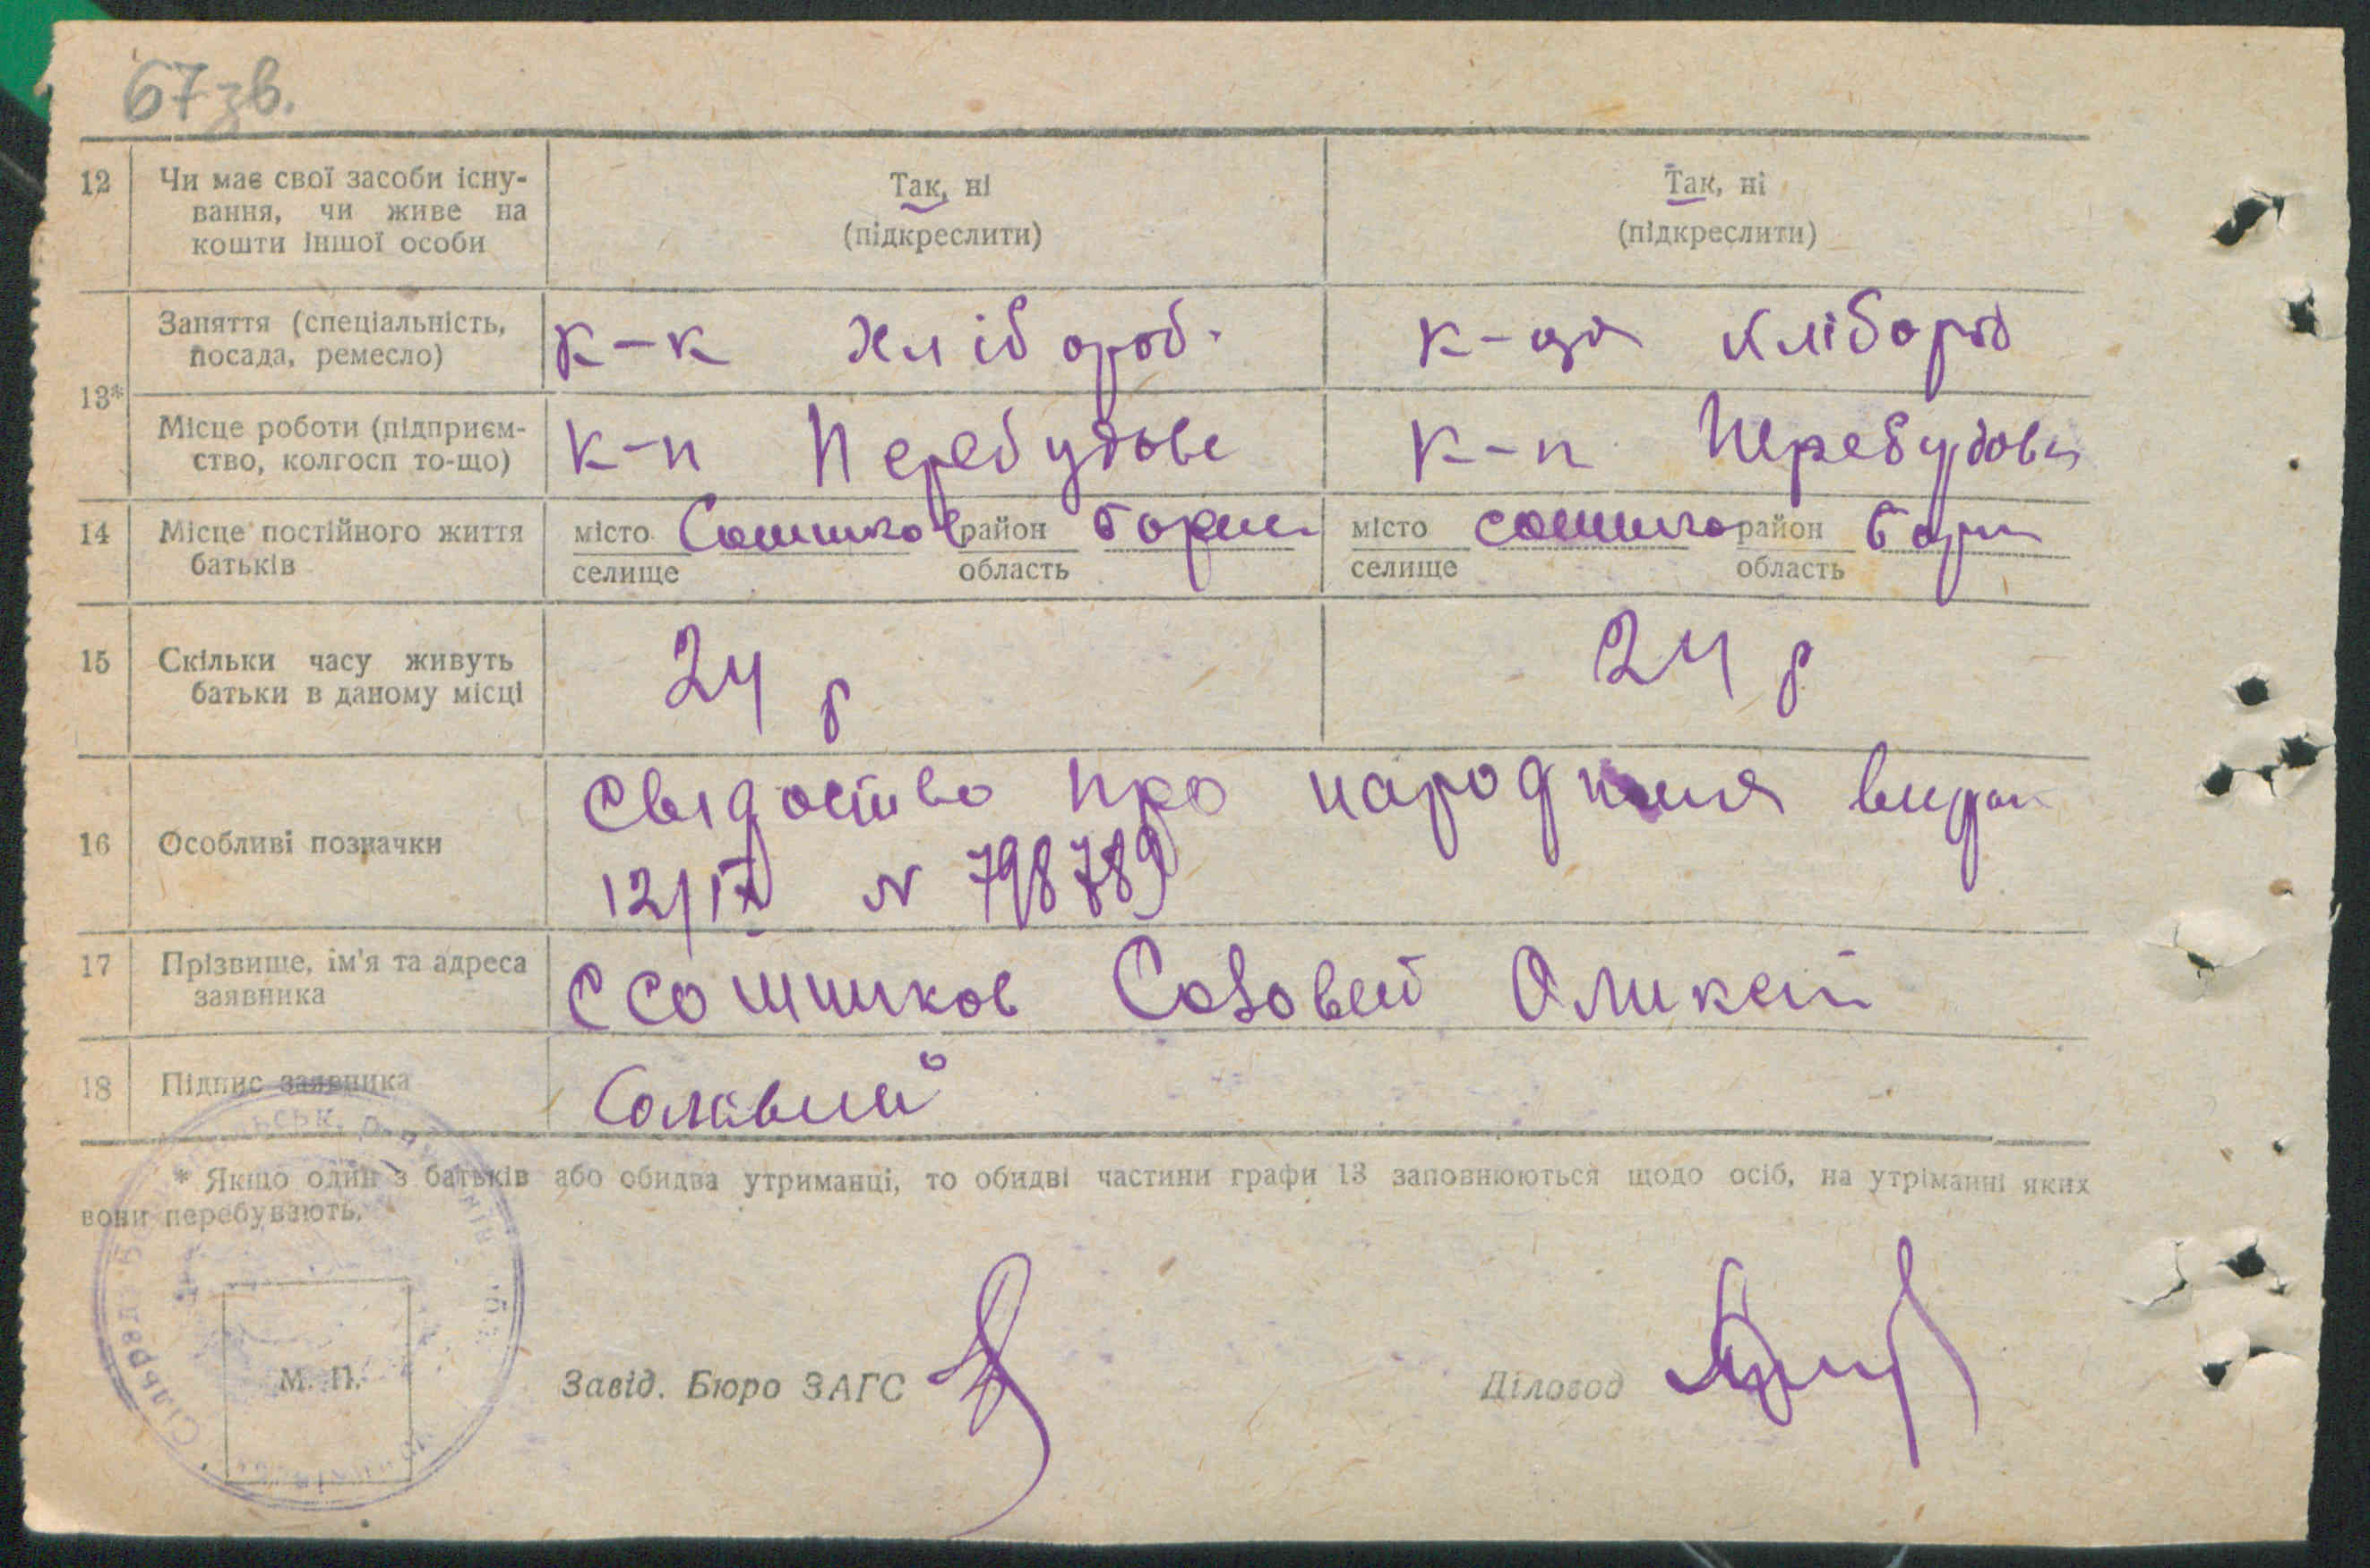 67 зв.
12 Чи має свої засоби існу-
вання, чи живе на
кошти іншої особи
Так, ні
(підкреслити)
Так, ні
(підкреслити)
13*
Заняття (спеціальність,
посада, ремесло)
к-к хлібороб.
к-ця хлібороб
Місце роботи (підприєм-
ство, колгосп то-що)
к-п Перебудове
к-п Перебудова
14 Місце постійного життя
батьків
місто Сошников район Борис
селище область
місто сошнико район Бори
селище область
15 Скільки часу живуть
батьки в даному місці
24 р
24 р
16 Особливі позначки
Свідоство про народження видан
12/IV № 798789
17 Прізвище, ім'я та адреса
заявника
С Сошников Соловей Оликсій
18 Підпис заявника
Соловий
* Якщо один з батьків або обидва утриманці, то обидві частини графи 13 заповнюються щодо осіб, на утріманні яких
вони перебувають.
М. П.
Завід. Бюро ЗАГС
Діловод